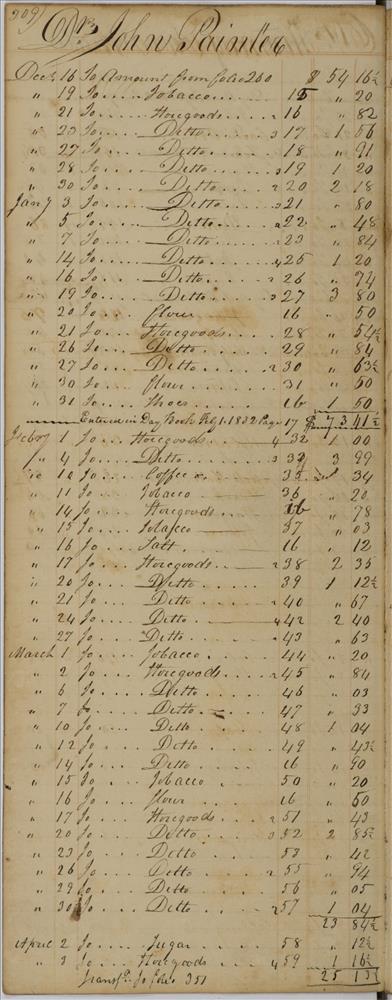 309
Dr John Painter
Decr 16 To Amount from folio 260 $ 54 16½
" 19 To Tobacco 15 " 20
" 21 To Storegoods 2 16 " 82
" 23 To Ditto 3 17 1 56
" 27 To Ditto 18 " 91
" 28 To Ditto 3 19 1 20
" 30 To Ditto 2 20 2 18
Jany 3 To Ditto 3 21 " 80
" 5 To Ditto 2 22 " 48
" 7 To Ditto 23 " 84
" 14 To Ditto 4 25 1 20
" 16 To Ditto 2 26 " 74
" 19 To Ditto 3 27 3 80
" 20 To flour 16 " 50
" 21 To Storegoods 28 " 54½
" 26 To Ditto 29 " 84
" 27 To Ditto 2 30 " 63½
" 30 To flour 31 " 50
" 31 To Shoes ib 1 50
Entered in Day Book Feby 1. 1832 Page 17 $ 73 41½
Feby 1 To Storegoods 4 32 1 00
" 4 To Ditto 3 33 3 99
" 10 To Coffee 35 " 34
" 11 To Tobacco 36 " 20
" 14 To Storegoods ib " 78
" 15 To Tobacco 37 " 03
" 16 To Salt ib " 12
" 17 To Storegoods 2 38 2 35
" 20 To Ditto 39 1 12½
" 21 To Ditto 2 40 " 67
" 24 To Ditto 4 42 2 40
" 27 To Ditto 2 43 " 63
March 1 To Tobacco 44 " 20
" 2 To Storegoods 2 45 " 84
" 6 To Ditto 46 " 03
" 7 To Ditto 47 " 33
" 10 To Ditto 48 1 04
" 12 To Ditto 49 " 43½
" 14 To Ditto ib " 90
" 15 To Tobacco 50 " 20
" 16 To flour ib " 50
" 17 To Storegoods 2 51 " 43
" 20 To Ditto 3 52 2 85½
" 23 To Ditto 53 " 42
" 26 To Ditto 2 55 " 94
" 29 To Ditto 56 " 05
" 30 To Ditto 2 57 1 04
23 84½
April 2 To Sugar 58 " 12½
" 3 To Storegoods 4 59 1 16½
Transfd to folio 351 25 13½